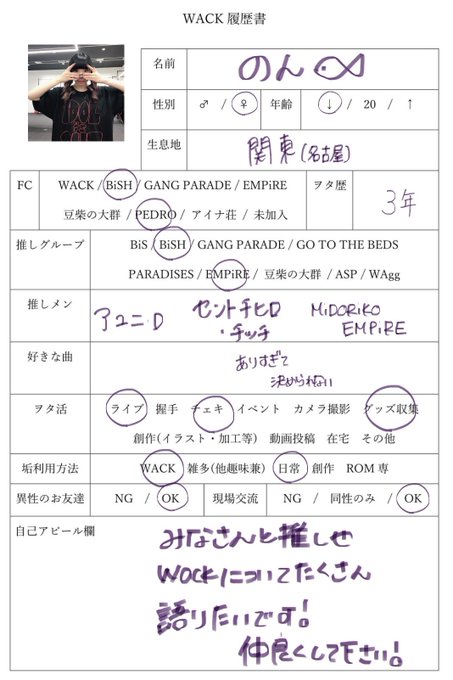 WACK 履歴書
名前 のん
性別 ♂ / ♀ 年齢 ↓ / 20 / ↑
生息地 関東(名古屋)
FC WACK / BiSH / GANG PARADE / EMPiRE
豆柴の大群 / PEDRO / アイナ荘 / 未加入
ヲタ歴 3年
推しグループ BiS / BiSH / GANG PARADE / GO TO THE BEDS
PARADISES / EMPiRE / 豆柴の大群 / ASP / WAgg
推しメン アユニ・D セントチヒロ・チッチ MiDORiKO EMPiRE
好きな曲 ありすぎて
決められない
ヲタ活 ライブ 握手 チェキ イベント カメラ撮影 グッズ収集
創作(イラスト・加工等) 動画投稿 在宅 その他
垢利用方法 WACK 雑多(他趣味兼) 日常 創作 ROM 専
異性のお友達 NG / OK 現場交流 NG / 同性のみ / OK
自己アピール欄 みなさんと推しせ
WACKについてたくさん
語りたいです!
仲良くして下さい!